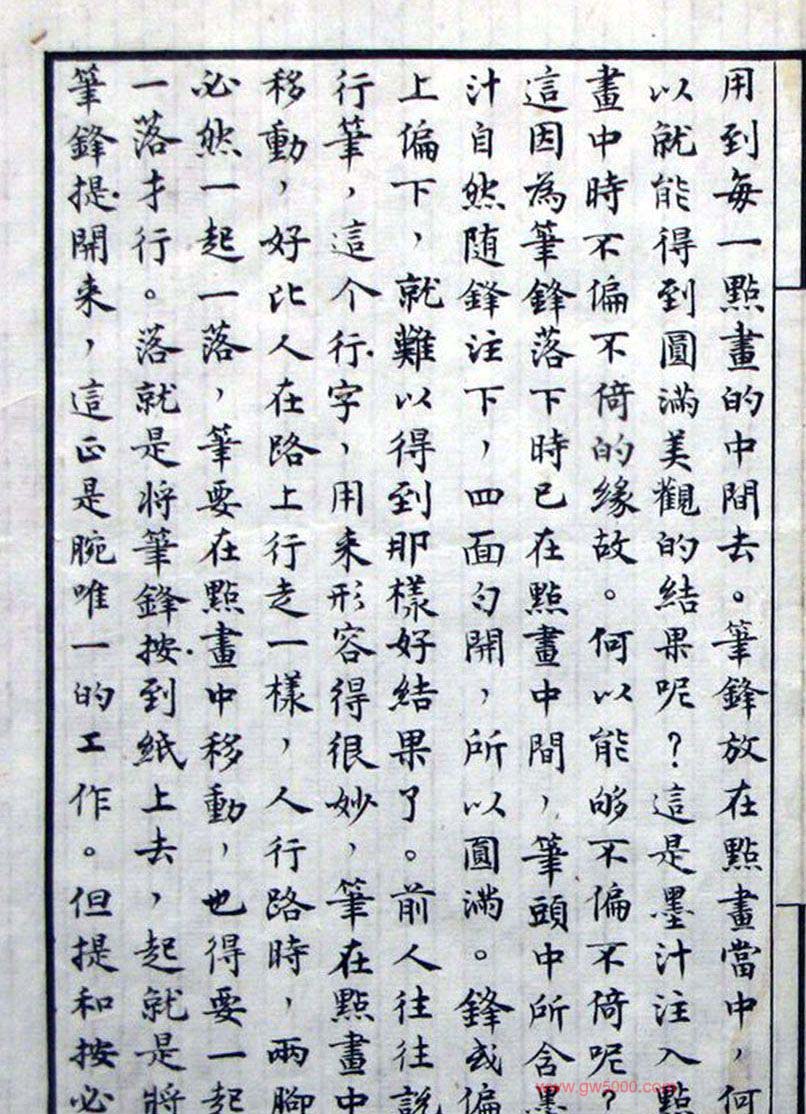 用到每一點畫的中間去。筆鋒放在點畫當中，何
以就能得到圓滿美觀的結果呢？這是墨汁注入點
畫中時不偏不倚的緣故。何以能够不偏不倚呢？
這因為筆鋒落下時已在點畫中間，筆頭中所含墨
汁自然随鋒注下，四面匀開，所以圓滿。鋒或偏
上偏下，就難以得到那樣好結果了。前人往往說
行筆，這个行字，用来形容得很妙，筆在點畫中
移動，好比人在路上行走一樣，人行路時，兩腳
必然一起一落，筆要在點畫中移動，也得要一起
一落才行。落就是將筆鋒按到紙上去，起就是將
筆鋒提開来，這正是腕唯一的工作。但提和按必
www.gw5000.com